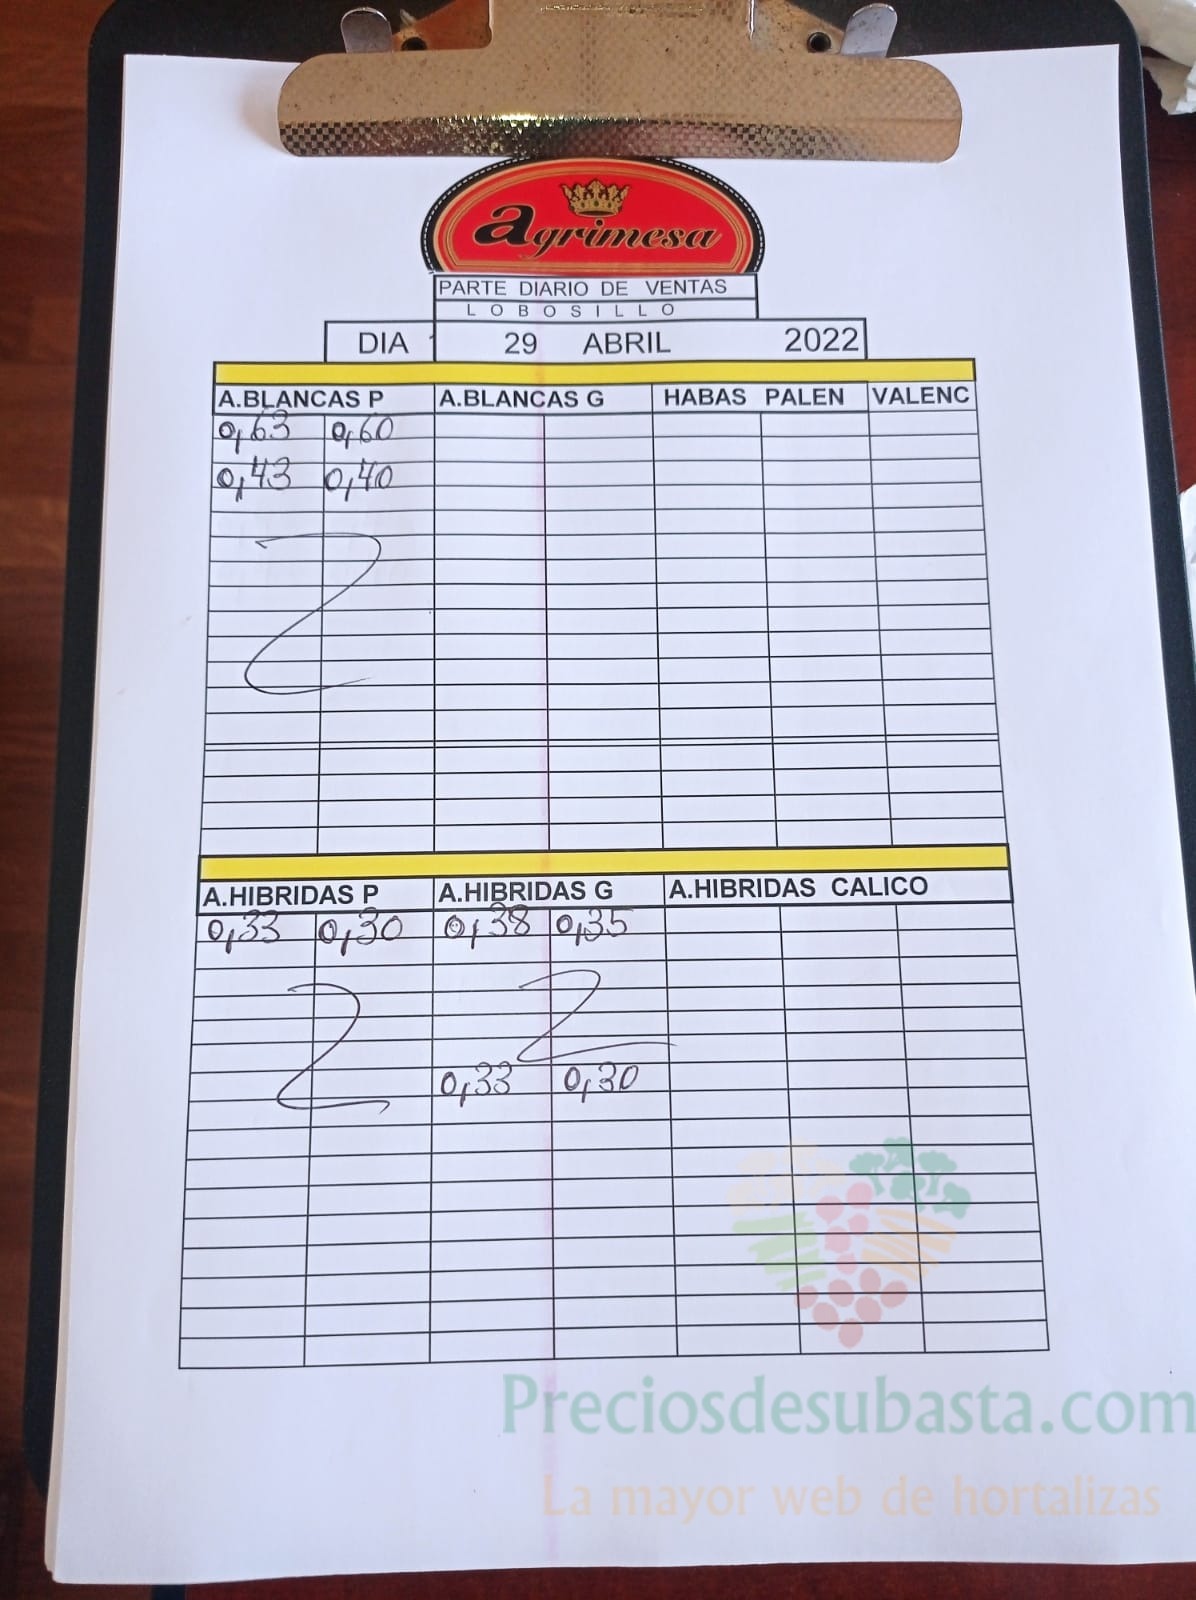 agrimesa
PARTE DIARIO DE VENTAS
LOBOSILLO
DIA 29 ABRIL 2022
A.BLANCAS P A.BLANCAS G HABAS PALEN VALENC
0,63 0,60
0,43 0,40
A.HIBRIDAS P A.HIBRIDAS G A.HIBRIDAS CALICO
0,33 0,30 0,38 0,35
0,33 0,30
Preciosdesubasta.com
La mayor web de hortalizas